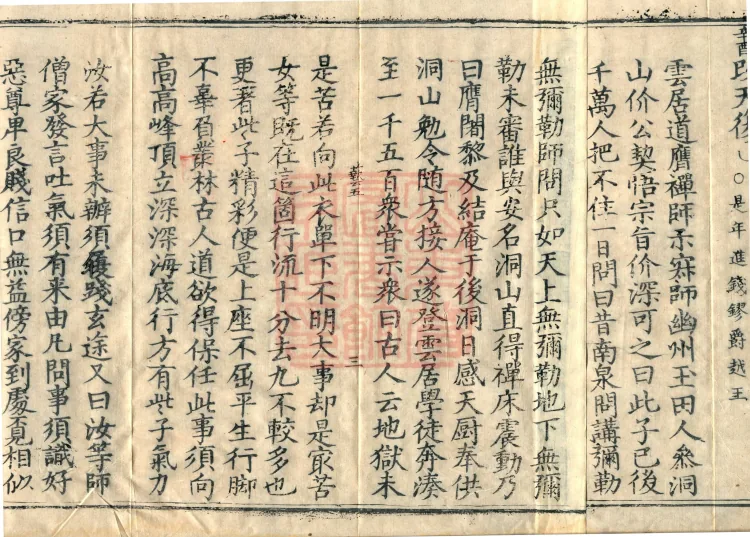 辛酉
天復
○是年進錢鏐爵越王
雲居道膺禪師示寂師幽州玉田人叅洞
山价公契悟宗旨价深可之曰此子已後
千萬人把不住一日問曰昔南泉問講彌勒
無彌勒師問只如天上無彌勒地下無彌
勒未審誰與安名洞山直得禪床震動乃
曰膺闍黎及結庵于後洞日感天厨奉供
洞山勉令随方接人遂登雲居學徒奔湊
至一千五百衆甞示衆曰古人云地獄未
藝五
三
是苦若向此衣單下不明大事却是㝡苦
女等既在這箇行流十分去九不較多也
更著些子精彩便是上座不屈平生行脚
不辜負叢林古人道欲得保任此事須向
高高峰頂立深深海底行方有些子氣力
汝若大事未辦須履踐玄途又曰汝等師
僧家發言吐氣須有来由凡問事須識好
惡尊卑良賤信口無益傍家到處覓相似